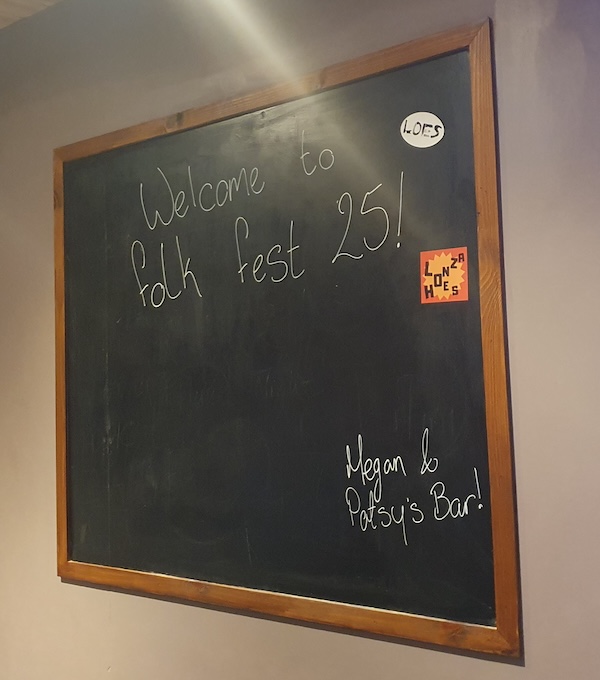 Welcome to
folk fest 25!
LOES
LONZA
HOES
Megan &
Patsy's Bar!